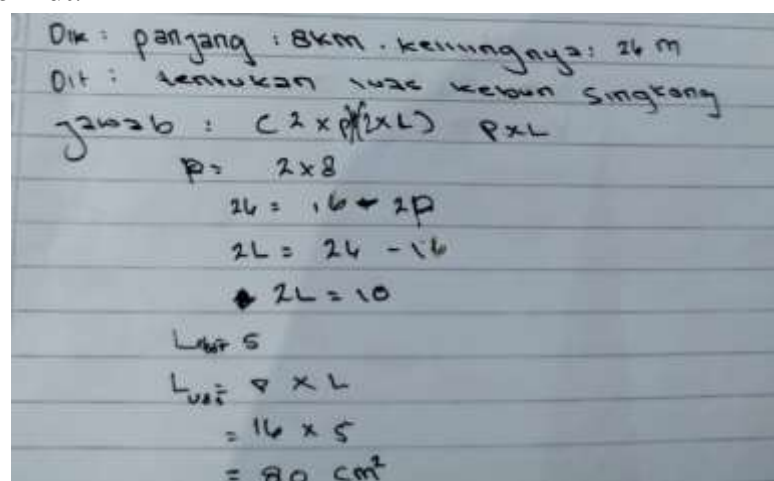 Dik : panjang : 8km . kelilingnya : 26 m
Dit : tentukan luas kebun singkong
Jawab : (2 x p)(2xL) PxL
P = 2 x 8
26 = 16 + 2p
2L = 26 - 16
2L = 10
Lebar 5
Luas = P x L
= 16 x 5
= 80 cm²